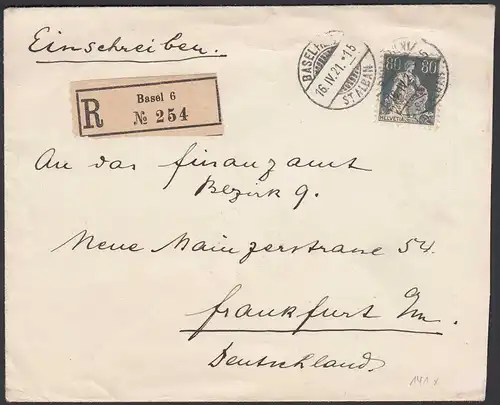 Einschreiben.
BASEL 16.IV.21.-15 ST.ALBAN
80 80
HELVETIA
R Basel 6
№ 254
An das Finanzamt
Bezirk 9.
Neue Mainzerstrasse 54.
Frankfurt a/m.
Deutschland.
141 y